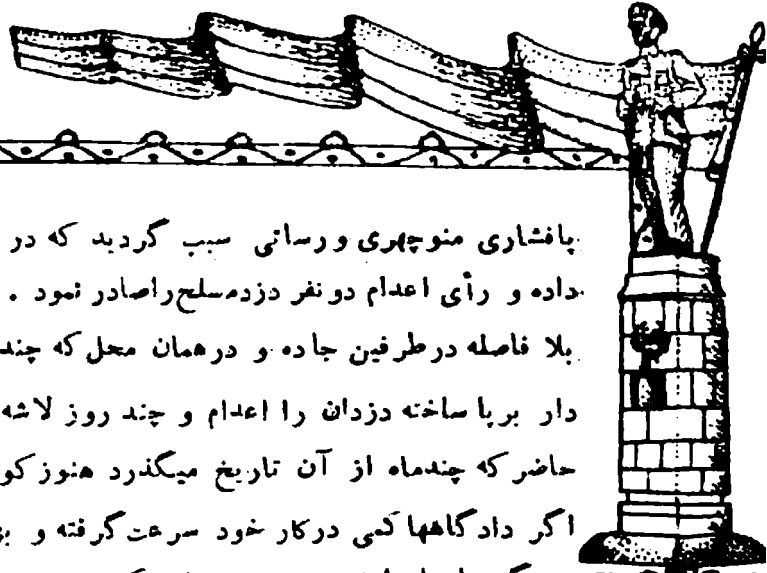 پافشاری منوچهری ورسائی سبب گردید که در
داده و رأی اعدام دو نفر دزدمسلح راصادر نمود .
بلا فاصله درطرفین جاده و درهمان محل که چند
دار برپا ساخته دزدان را اعدام و چند روز لاشه
حاضر که چندماه از آن تاریخ میگذرد هنوز کو
اگر دادگاهها کمی درکار خود سرعت گرفته و